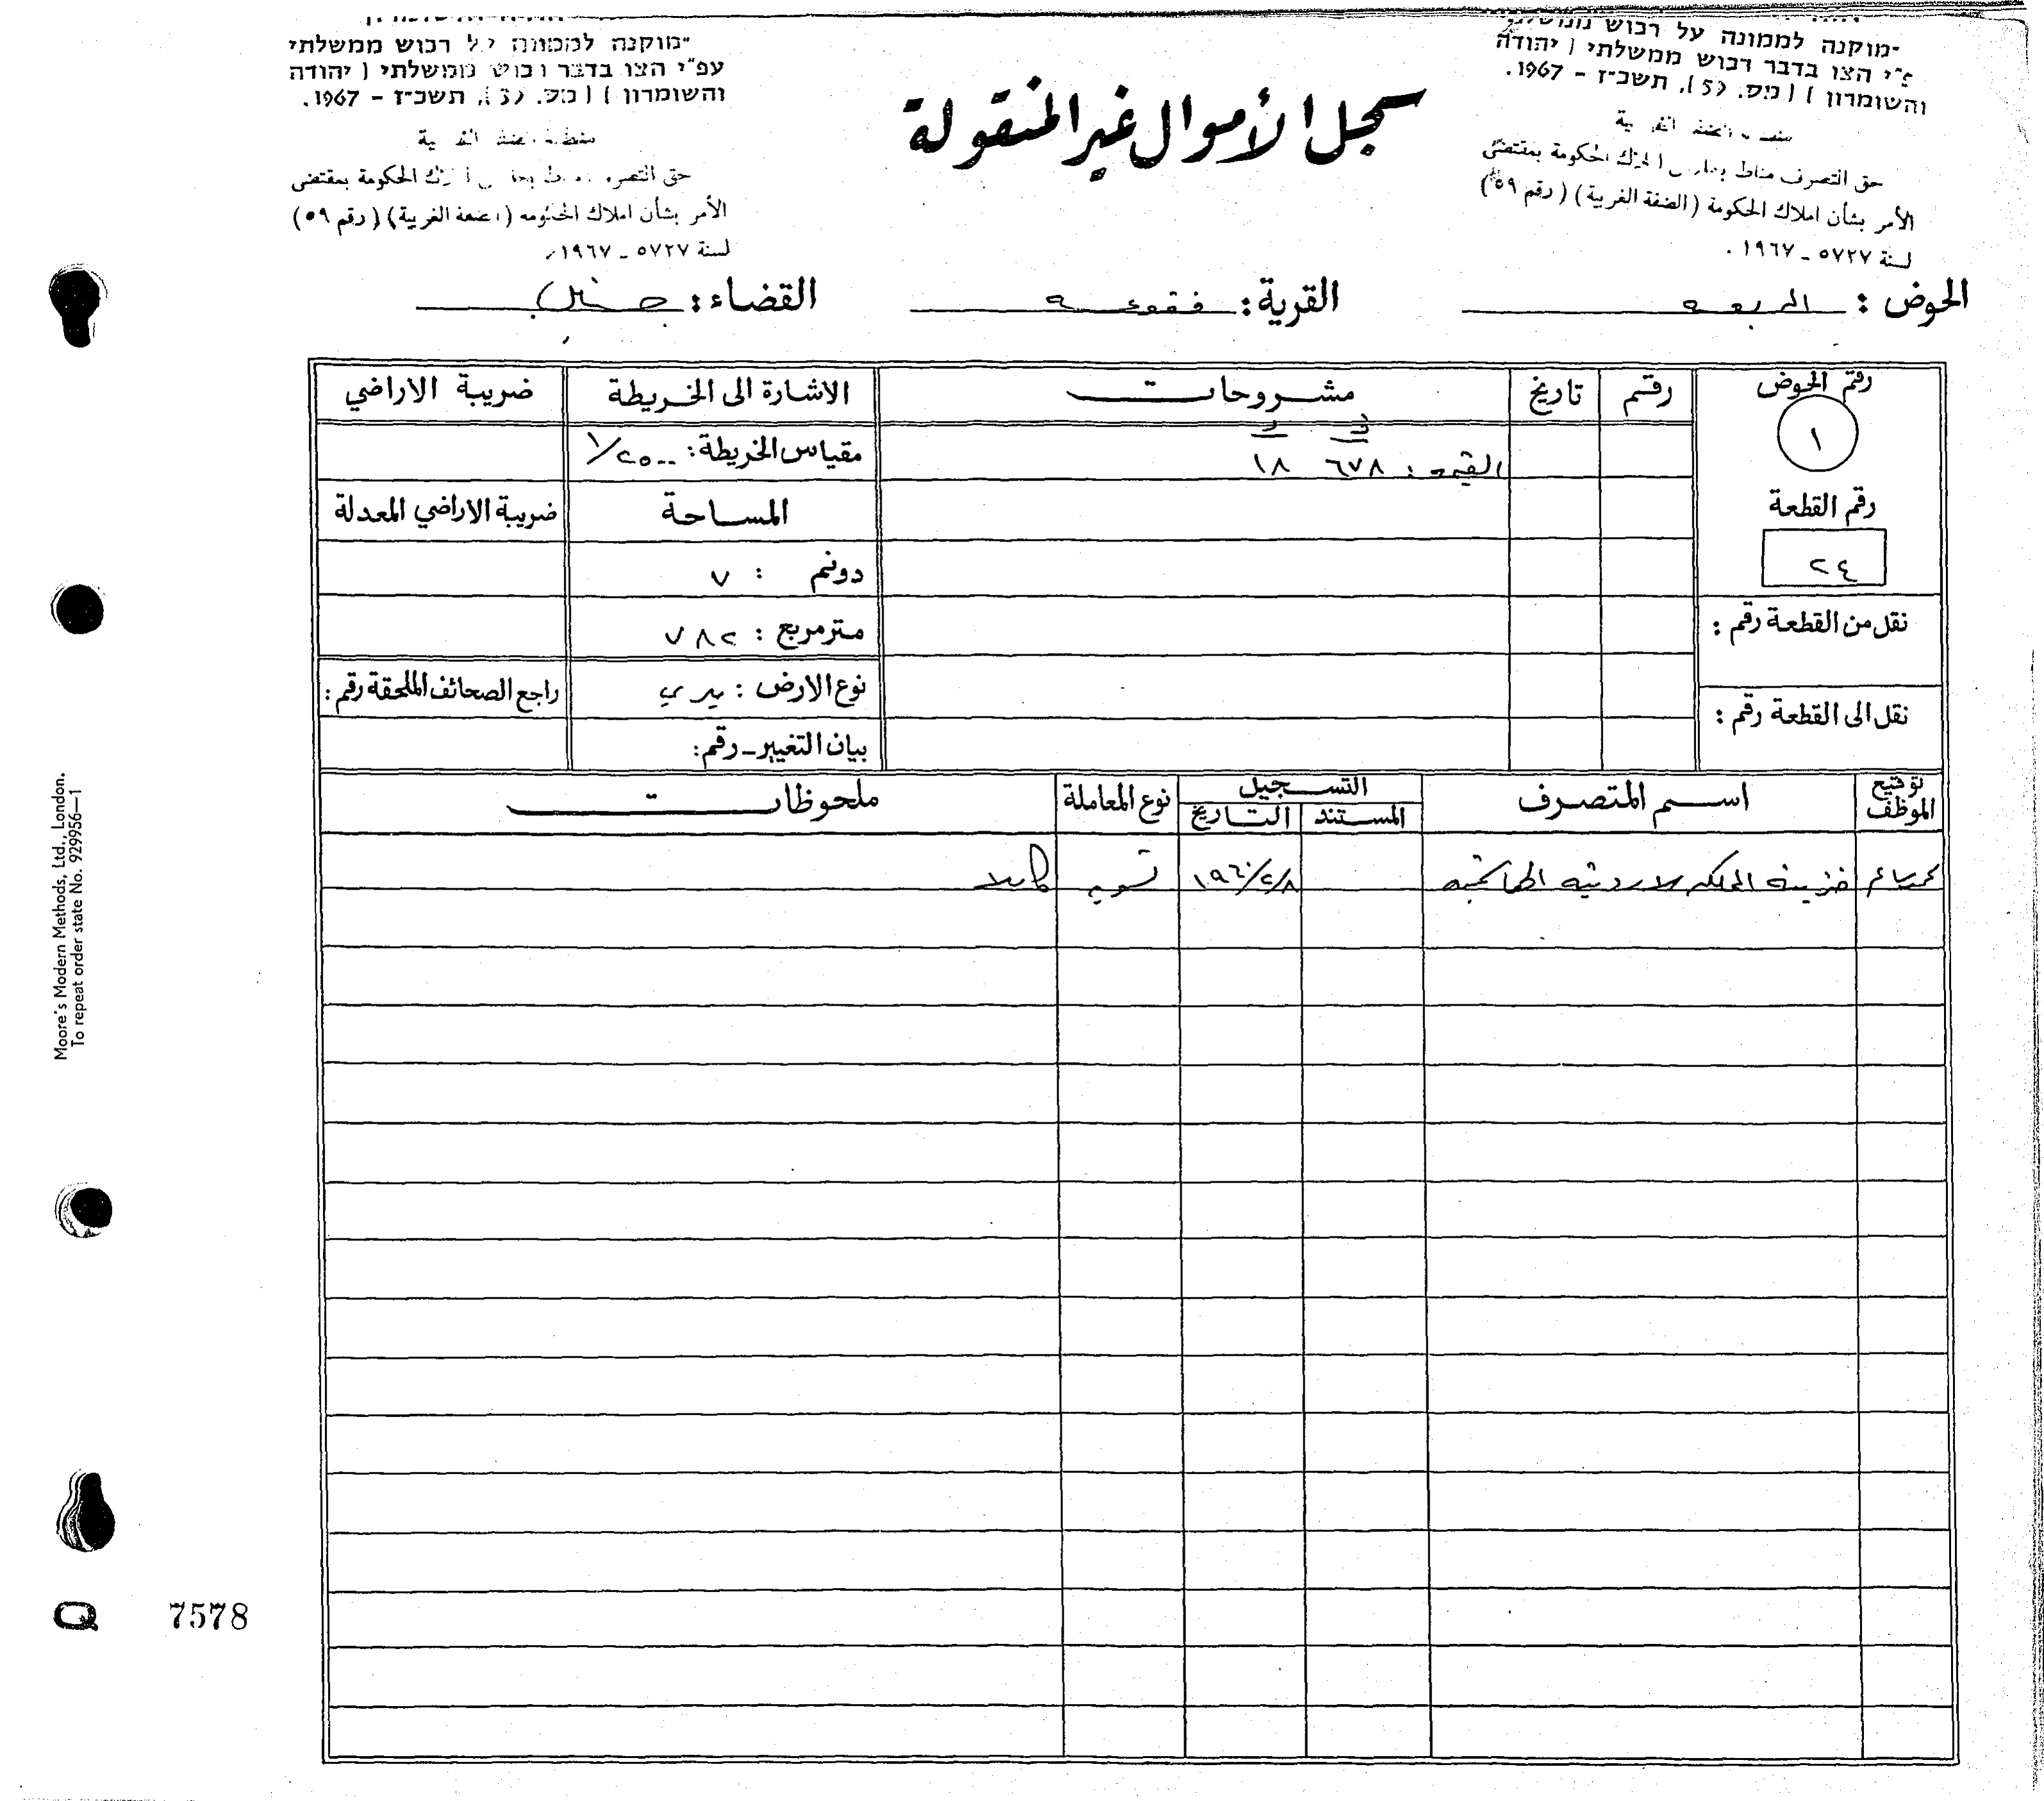 "מוקנה לממונה על רכוש ממשלתי
ע"י הצו בדבר רכוש ממשלתי ( יהודה
והשומרון ) ( מס. 59 ), תשכ"ז - 1967.
حق التصرف مناط بحارس املاك الحكومة بمقتضى
الأمر بشأن املاك الحكومة (الضفة الغربية) (رقم ٥٩)
لسنة ٥٧٢٧ ـ ١٩٦٧ .
سجل الأموال غير المنقولة
"מוקנה לממונה על רכוש ממשלתי
עפ"י הצו בדבר רכוש ממשלתי ( יהודה
והשומרון ) ( מס. 59 ), תשכ"ז - 1967.
حق التصرف مناط بحارس املاك الحكومة بمقتضى
الأمر بشأن املاك الحكومة (الضفة الغربية) (رقم ٥٩)
لسنة ٥٧٢٧ ـ ١٩٦٧ .
الحوض : الربعه القرية : فقوعه القضاء : جنين
رقم الحوض رقم تاريخ مشروحات الاشارة الى الخريطة ضريبة الاراضي
١
القيمة : ٦٧٨ ١٨
مقياس الخريطة : ١/٢٥٠٠
رقم القطعة
٢٤
المساحة ضريبة الاراضي المعدلة
دونم : ٧
نقل من القطعة رقم :
متر مربع : ٧٨٢
نوع الارض : ميري راجع الصحائف الملحقة رقم :
نقل الى القطعة رقم :
بيان التغيير ـ رقم :
توقيع الموظف اسم المتصرف التسجيل نوع المعاملة ملحوظات
المستند التاريخ
خزينة المملكه الاردنيه الهاشميه ١٩٦٠/٢/٨ تسويه كاملا
Moore's Modern Methods, Ltd., London.
To repeat order state No. 929956—1
Q 7578